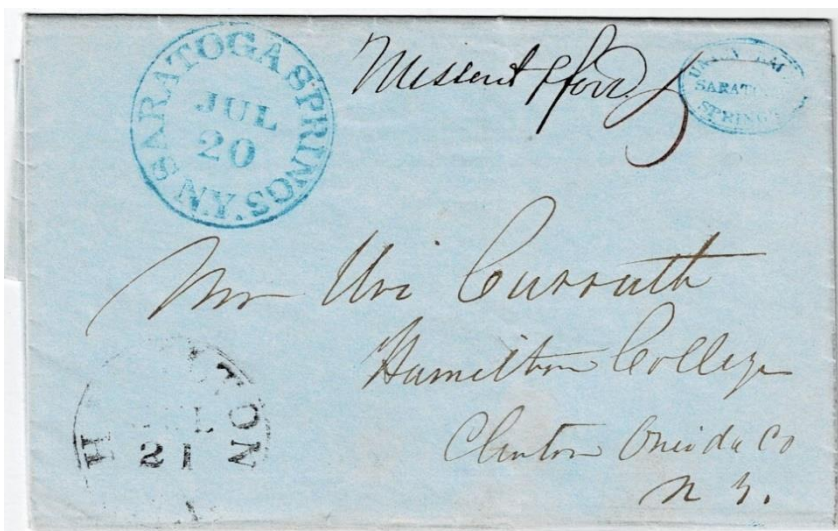 SARATOGA SPRINGS
N.Y.
JUL
20
Missent & ford
5
SARATO
SPRINGS
Mr Uri Curruth
Hamilton College
Clinton Oneida Co
N Y.
H TON
L
21